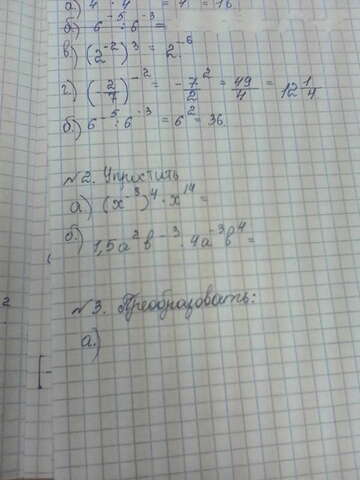 а) 4 · 4 = 4 = 16
б) 6⁻⁵ : 6⁻³ =
в) (2⁻²)³ = 2⁻⁶
г.) (2/7)⁻² = -7/2² = 49/4 = 12 1/4
б.) 6⁻⁵ : 6⁻³ = 6² = 36.
№2. Упростить
а) (x⁻³)⁴ · x¹⁴ =
б.) 1,5a²b⁻³ · 4a⁻³b⁴ =
№3. Преобразовать:
а.)
2